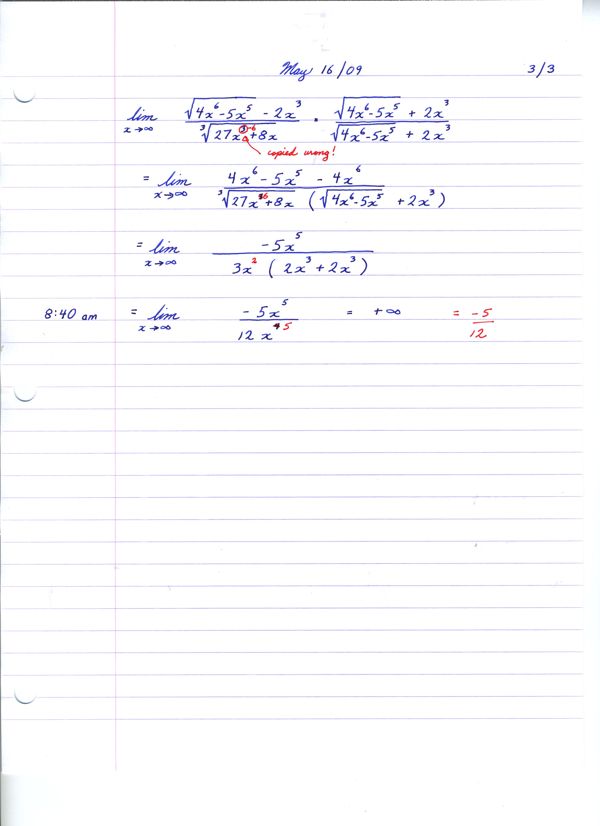 May 16/09 3/3
lim x→∞ √(4x⁶-5x⁵) - 2x³ / ³√(27x³ 6+8x) · √(4x⁶-5x⁵) + 2x³ / √(4x⁶-5x⁵) + 2x³
copied wrong!
= lim x→∞ 4x⁶ - 5x⁵ - 4x⁶ / ³√(27x³ 6+8x) (√(4x⁶-5x⁵) + 2x³)
= lim x→∞ -5x⁵ / 3x² (2x³ + 2x³)
8:40 am = lim x→∞ -5x⁵ / 12x⁴ 5 = +∞ = -5/12